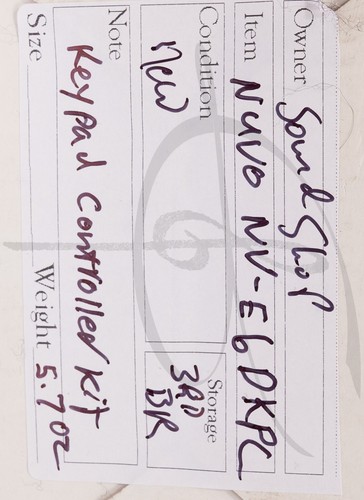 Owner Sound Shop
Item NUVO NV-E6DXPC
Condition new
Storage 3RD BR
Note Keypad Controller Kit
Size Weight 5.7 oz